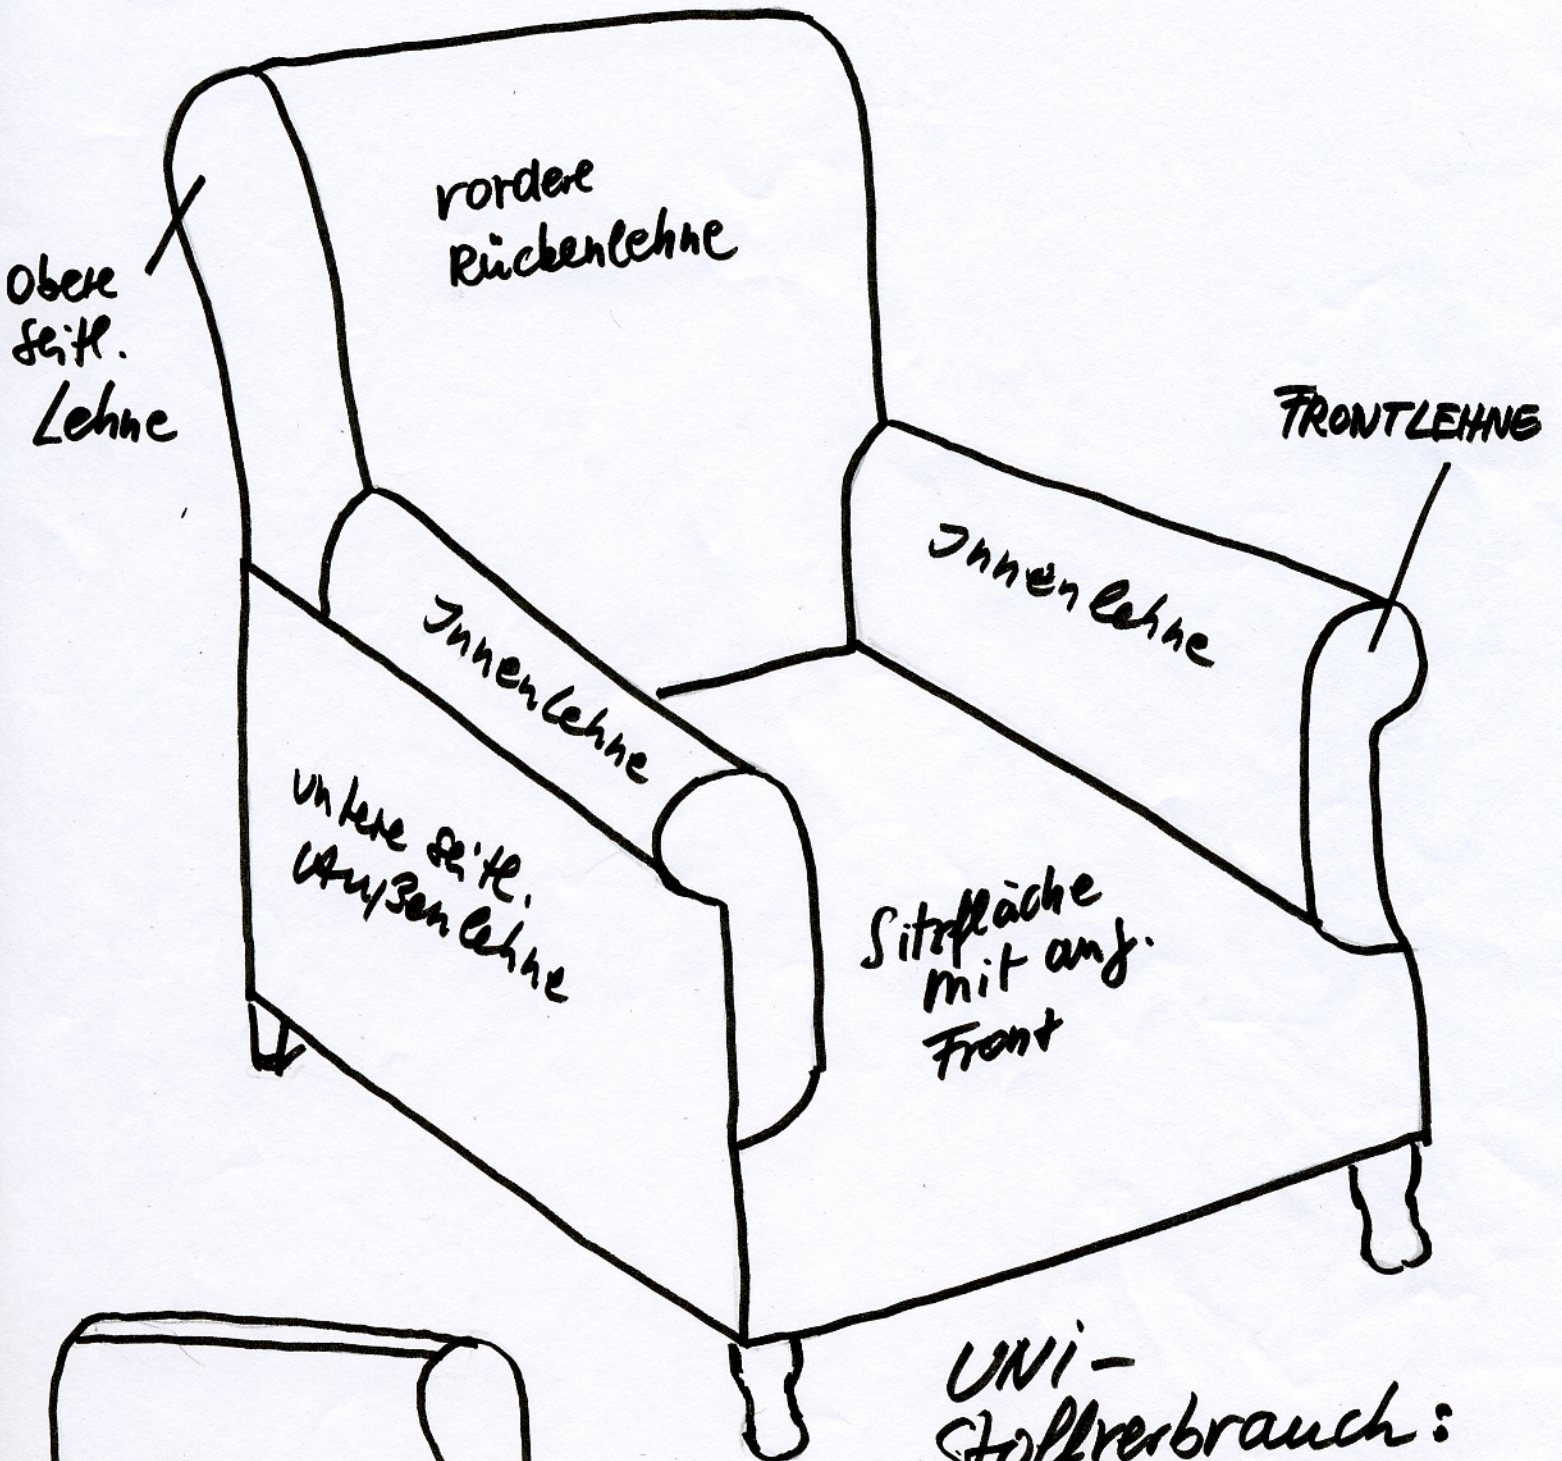 vordere
Rückenlehne
Obere
seitl.
Lehne
FRONTLEHNE
Innenlehne
Innenlehne
untere seitl.
Außenlehne
Sitzfläche
mit ang.
Front
UNI-
Stoffverbrauch: